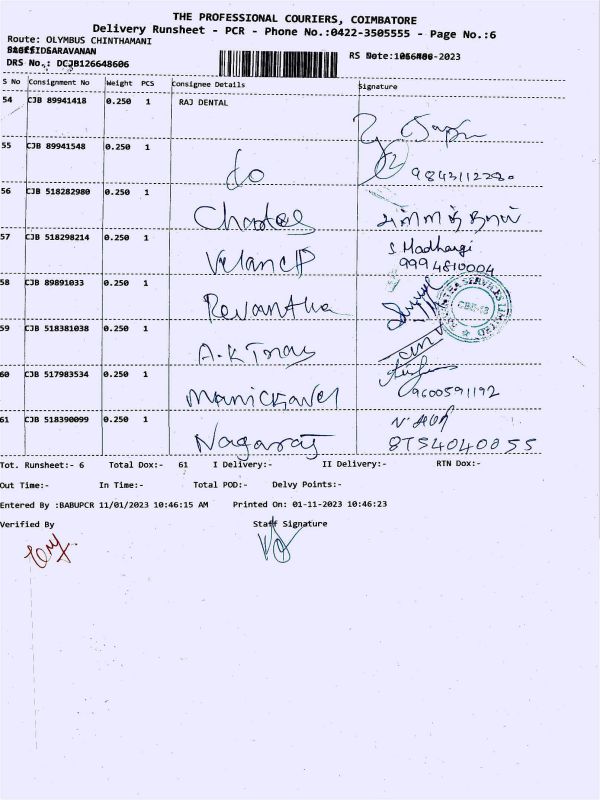 THE PROFESSIONAL COURIERS, COIMBATORE
Delivery Runsheet - PCR - Phone No.:0422-3505555 - Page No.:6
Route: OLYMBUS CHINTHAMANI
SARAVANAN
DRS No.: DCJB126648606
-2023
S No Consignment No Weight PCS Consignee Details Signature
54 CJB 89941418 0.250 1 RAJ DENTAL
55 CJB 89941548 0.250 1
56 CJB 518282980 0.250 1
57 CJB 518298214 0.250 1 S Madhangi
9994810004
58 CJB 89891033 0.250 1 Revantha
59 CJB 518381038 0.250 1 A.K
60 CJB 517983534 0.250 1 Manickavel 9600591192
61 CJB 518390099 0.250 1 Nagaraj
8754040855
Tot. Runsheet:- 6 Total Dox:- 61 I Delivery:- II Delivery:- RTN Dox:-
Out Time:- In Time:- Total POD:- Delvy Points:-
Entered By :BABUPCR 11/01/2023 10:46:15 AM Printed On: 01-11-2023 10:46:23
Verified By Staff Signature